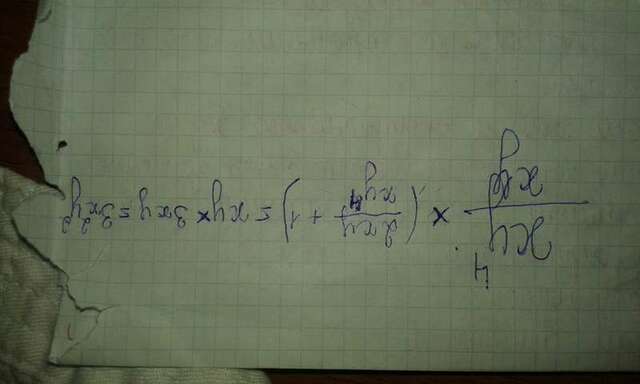 xy⁴/xy × (2xy/xy + 1) = xy × 3xy = 3x²y²